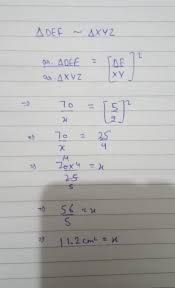 △DEF ~ △XYZ
ar. △DEF / ar. △XYZ = [DE / XY]²
⇒ 70 / x = [5 / 2]²
⇒ 70 / x = 25 / 4
⇒ 70 x 4 / 25 = x
14
5
⇒ 56 / 5 = x
⇒ 11.2 cm² = x